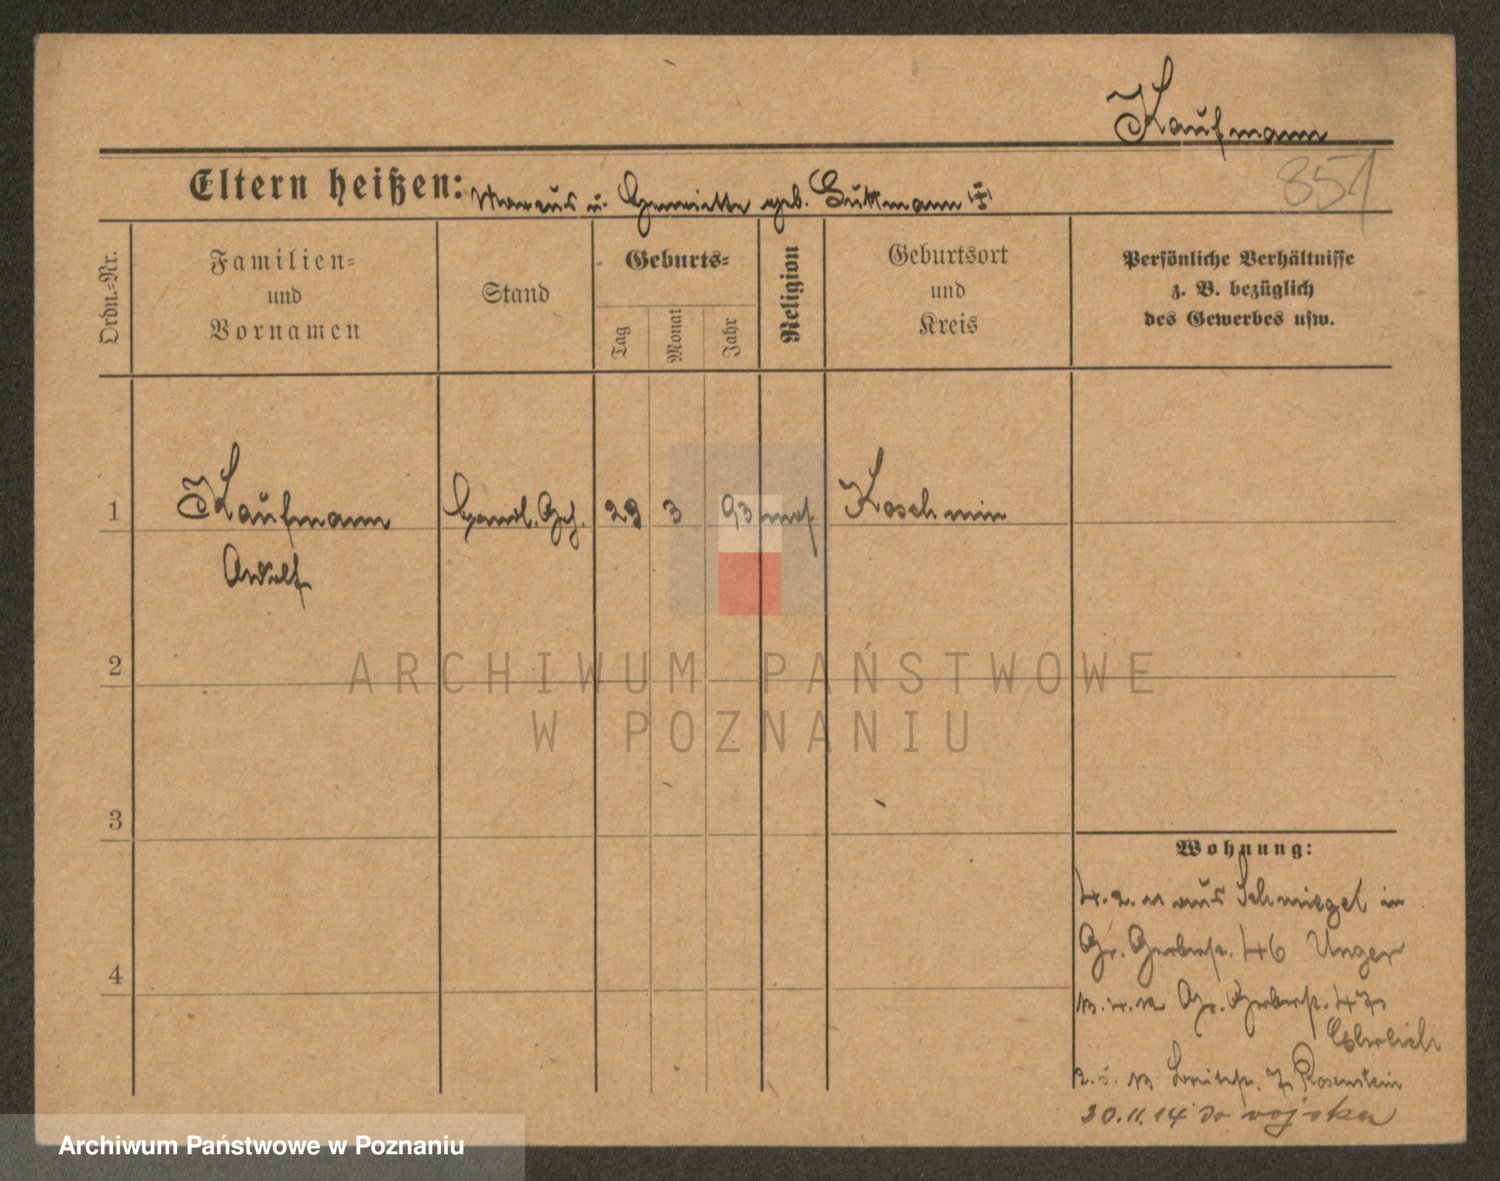 Kaufmann
851
Eltern heißen: Marcus u. Henriette geb. Guttmann
Ordn.=Nr.
Familien=
und
Vornamen
Stand
Geburts=
Tag
Monat
Jahr
Religion
Geburtsort
und
Kreis
Persönliche Verhältnisse
z. B. bezüglich
des Gewerbes usw.
1
Kaufmann
Adolf
Handl. Geh.
29
3
93
mos.
Koschmin
2
3
4
Wohnung:
aus Schmiegel in
Gr. Gerberstr. 46 Unger
Gr. Gerberstr. 47
Ehrlich
Rosenstein
20.11.14 do vojska
ARCHIWUM PAŃSTWOWE
W POZNANIU
Archiwum Państwowe w Poznaniu